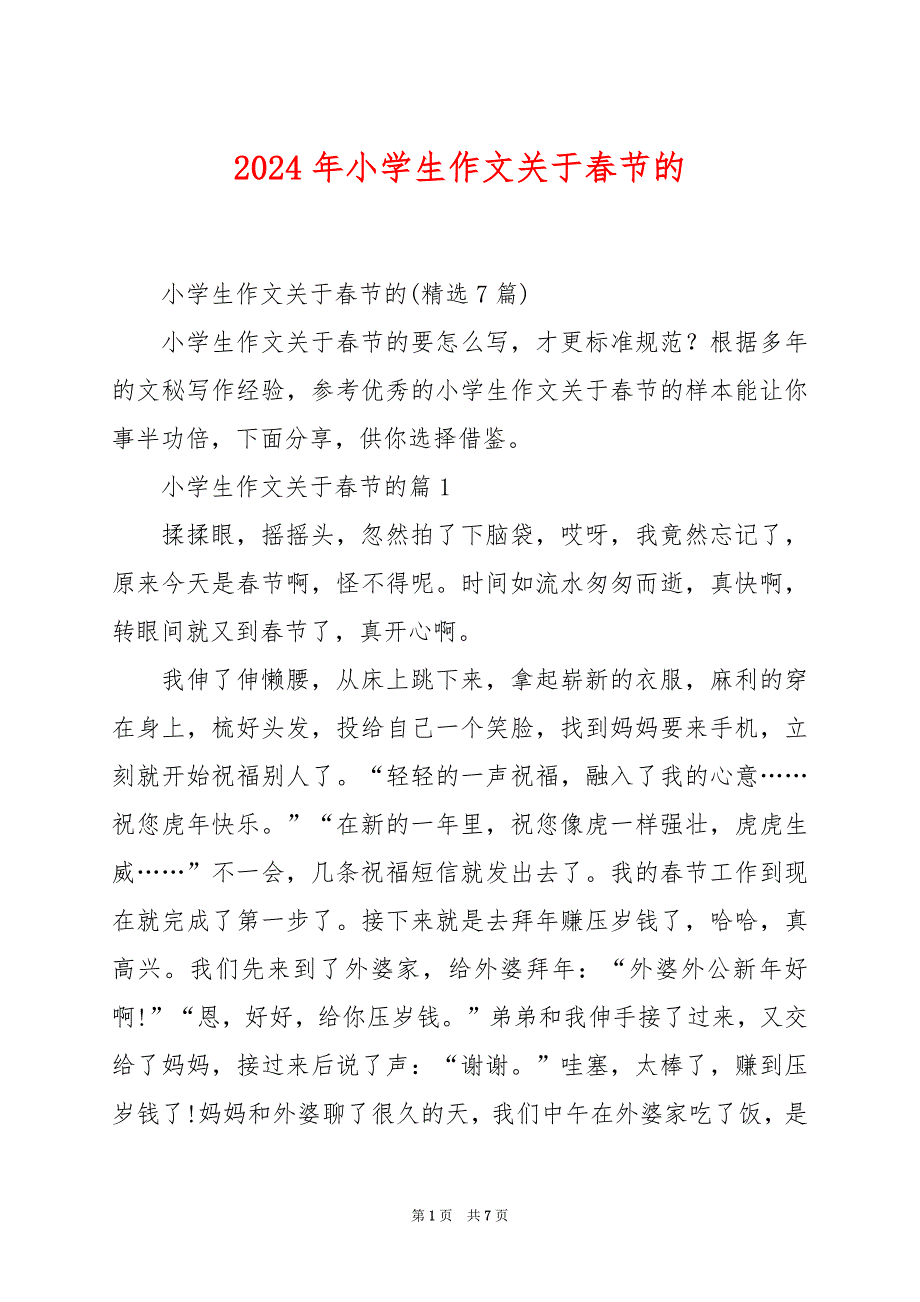 2024 年小学生作文关于春节的
小学生作文关于春节的(精选 7 篇)
小学生作文关于春节的要怎么写，才更标准规范？根据多年
的文秘写作经验，参考优秀的小学生作文关于春节的样本能让你
事半功倍，下面分享，供你选择借鉴。
小学生作文关于春节的篇 1
揉揉眼，摇摇头，忽然拍了下脑袋，哎呀，我竟然忘记了，
原来今天是春节啊，怪不得呢。时间如流水匆匆而逝，真快啊，
转眼间就又到春节了，真开心啊。
我伸了伸懒腰，从床上跳下来，拿起崭新的衣服，麻利的穿
在身上，梳好头发，投给自己一个笑脸，找到妈妈要来手机，立
刻就开始祝福别人了。“轻轻的一声祝福，融入了我的心意……
祝您虎年快乐。”“在新的一年里，祝您像虎一样强壮，虎虎生
威……”不一会，几条祝福短信就发出去了。我的春节工作到现
在就完成了第一步了。接下来就是去拜年赚压岁钱了，哈哈，真
高兴。我们先来到了外婆家，给外婆拜年：“外婆外公新年好
啊!”“恩，好好，给你压岁钱。”弟弟和我伸手接了过来，又交
给了妈妈，接过来后说了声：“谢谢。”哇塞，太棒了，赚到压
岁钱了!妈妈和外婆聊了很久的天，我们中午在外婆家吃了饭，是
第 1 页 共 7 页